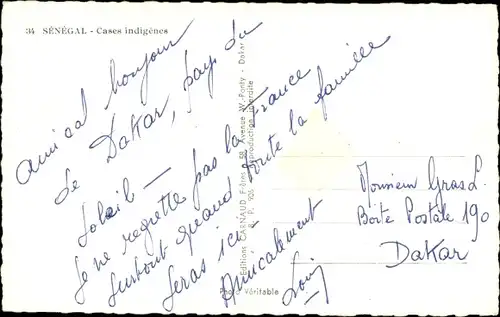 34 SÉNÉGAL - Cases indigènes
Amical bonjour
de Dakar, pays du
Soleil —
Je ne regrette pas la France
surtout quand toute la famille
seras ici
Amicalement
Editions CARNAUD Frères 58, Avenue W.-Ponty - Dakar
Reproduction interdite
Photo Véritable
Monsieur Gras L.
Boite Postale 190
Dakar